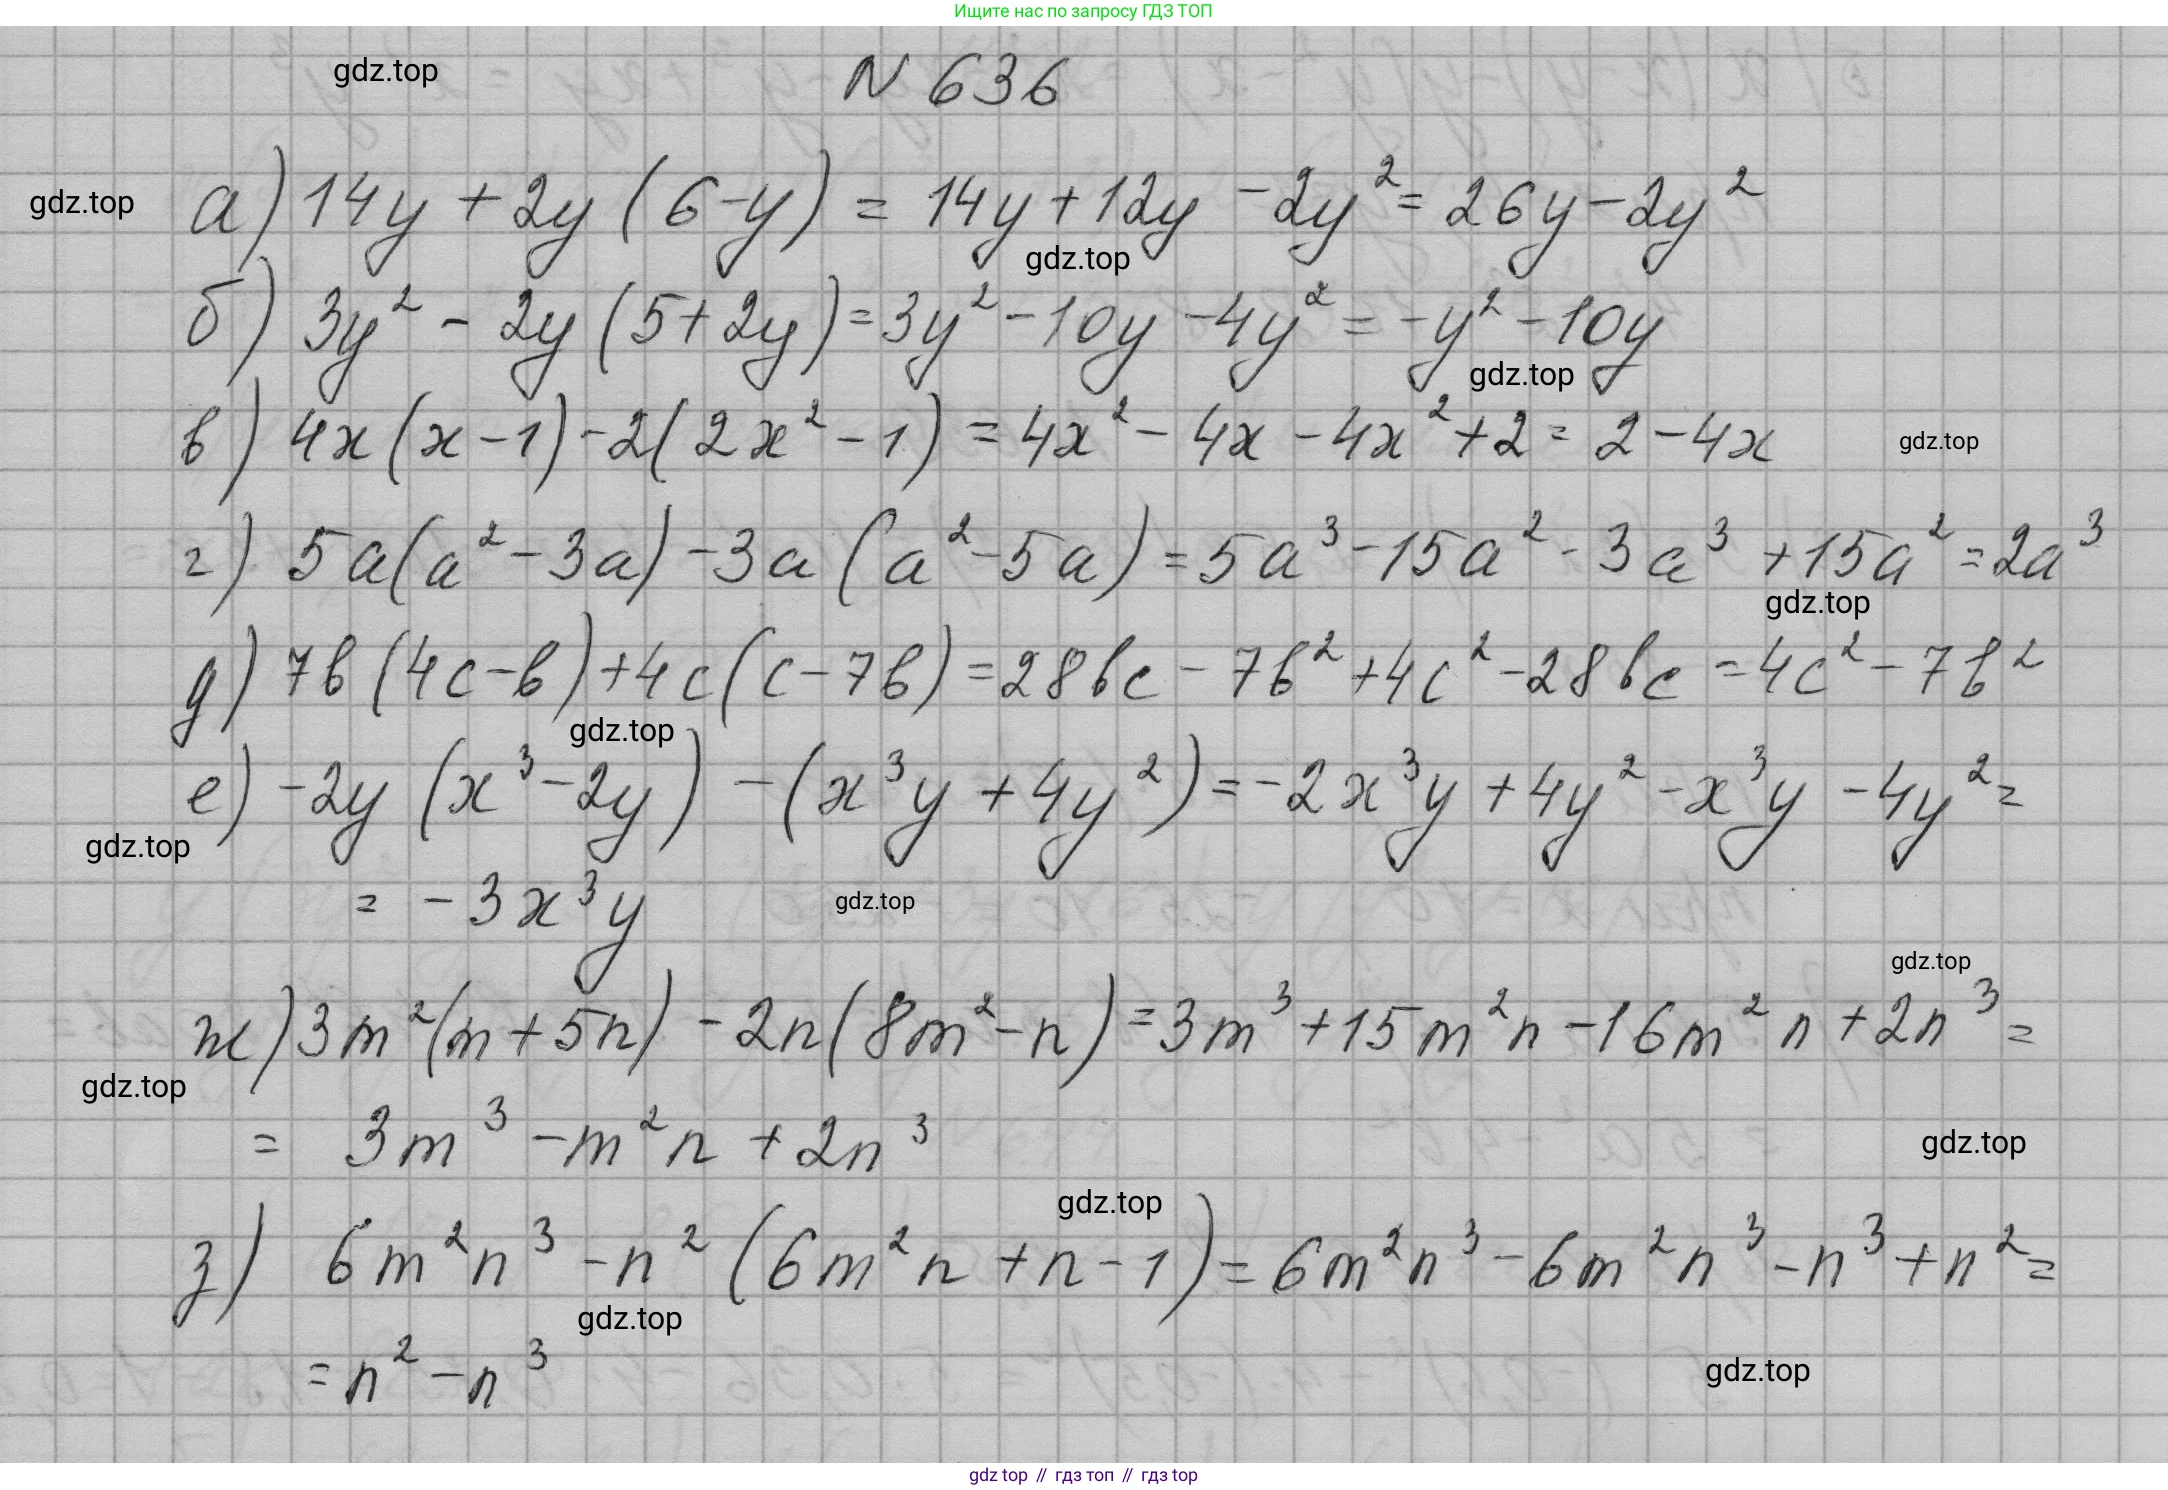 Ищите нас по запросу ГДЗ ТОП
gdz.top
N 636
gdz.top
а) 14y + 2y (6-y) = 14y + 12y - 2y² = 26y - 2y²
gdz.top
б) 3y² - 2y (5+2y) = 3y² - 10y - 4y² = -y² - 10y
gdz.top
в) 4x (x-1) - 2(2x² - 1) = 4x² - 4x - 4x² + 2 = 2 - 4x
gdz.top
г) 5a(a² - 3a) - 3a (a² - 5a) = 5a³ - 15a² - 3a³ + 15a² = 2a³
gdz.top
д) 7b (4c-b) + 4c (c-7b) = 28bc - 7b² + 4c² - 28bc = 4c² - 7b²
gdz.top
е) -2y (x³ - 2y) - (x³y + 4y²) = -2x³y + 4y² - x³y - 4y² =
gdz.top
= -3x³y
gdz.top
gdz.top
ж) 3m²(m + 5n) - 2n(8m² - n) = 3m³ + 15m²n - 16m²n + 2n³ =
gdz.top
= 3m³ - m²n + 2n³
gdz.top
gdz.top
з) 6m²n³ - n² (6m²n + n - 1) = 6m²n³ - 6m²n³ - n³ + n² =
gdz.top
= n² - n³
gdz.top
gdz top // гдз топ // гдз top